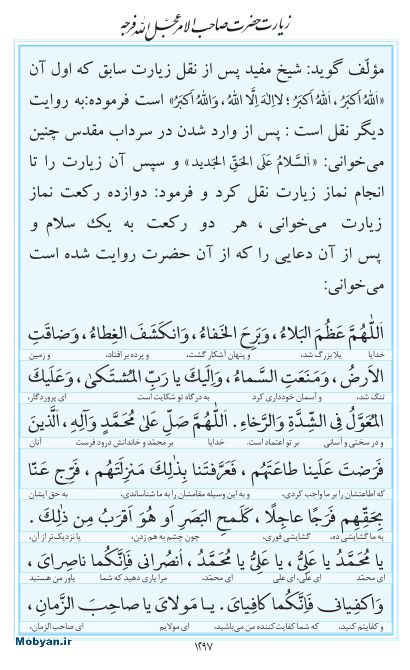 زیارت حضرت صاحب الامر عجل الله فرجه
مؤلّف گوید: شیخ مفید پس از نقل زیارت سابق که اول آن
«اَللهُ اَکبَرُ، اَللهُ اَکبَرُ؛ لااِلهَ اِلَّا اللهُ، وَاللهُ اَکبَرُ» است فرموده:به روایت
دیگر نقل است : پس از وارد شدن در سرداب مقدس چنین
می‌خوانی: «اَلسَّلامُ عَلَی الحَقِّ الجَدید» و سپس آن زیارت را تا
انجام نماز زیارت نقل کرد و فرمود: دوازده رکعت نماز
زیارت می‌خوانی ، هر دو رکعت به یک سلام و
پس از آن دعایی را که از آن حضرت روایت شده است
می‌خوانی:
اَللّٰهُمَّ عَظُمَ البَلاءُ ، وَبَرِحَ الخَفاءُ ، وَانکَشَفَ الغِطاءُ ، وَضاقَتِ
خدایا بلا بزرگ شد، و پنهان آشکار گشت، و پرده بر افتاد، و زمین
الاَرضُ ، وَمَنَعَتِ السَّماءُ ، وَاِلَیكَ یا رَبِّ المُشتَکیٰ ، وَعَلَیكَ
تنگ شد، و آسمان خودداری کرد به درگاه تو شکایت است ای پروردگار،
المُعَوَّلُ فِی الشِّدَّةِ وَالرَّخاءِ . اَللّٰهُمَّ صَلِّ عَلیٰ مُحَمَّدٍ وَآلِهِ ، الَّذینَ
و در سختی و آسانی بر تو اعتماد است. خدایا بر محمّد و خاندانش درود فرست آنان
فَرَضتَ عَلَینا طاعَتَهُم ، فَعَرَّفتَنا بِذٰلِكَ مَنزِلَتَهُم ، فَرِّج عَنّا
که اطاعتشان را بر ما واجب کردی، و به این وسیله مقامشان را به ما شناساندی، به حق ایشان
بِحَقِّهِم فَرَجًا عاجِلًا ، کَلَمحِ البَصَرِ اَو هُوَ اَقرَبُ مِن ذٰلِكَ .
به ما گشایشی ده، گشایشی فوری، چون چشم به هم زدن، یا نزدیک‌تر از آن،
یا مُحَمَّدُ یا عَلِیُّ ، یا عَلِیُّ یا مُحَمَّدُ ، اُنصُرانی فَاِنَّکُما ناصِرایَ ،
ای محمّد ای علی، ای علی ای محمّد، مرا یاری دهید که شما یاور من هستید
وَاکفِیانی فَاِنَّکُما کافِیایَ . یا مَولایَ یا صاحِبَ الزَّمانِ ،
و کفایتم کنید، که شما کفایت‌کننده من می‌باشید، ای مولایم ای صاحب الزمان،
۱۲۹۷
Mobyan.ir